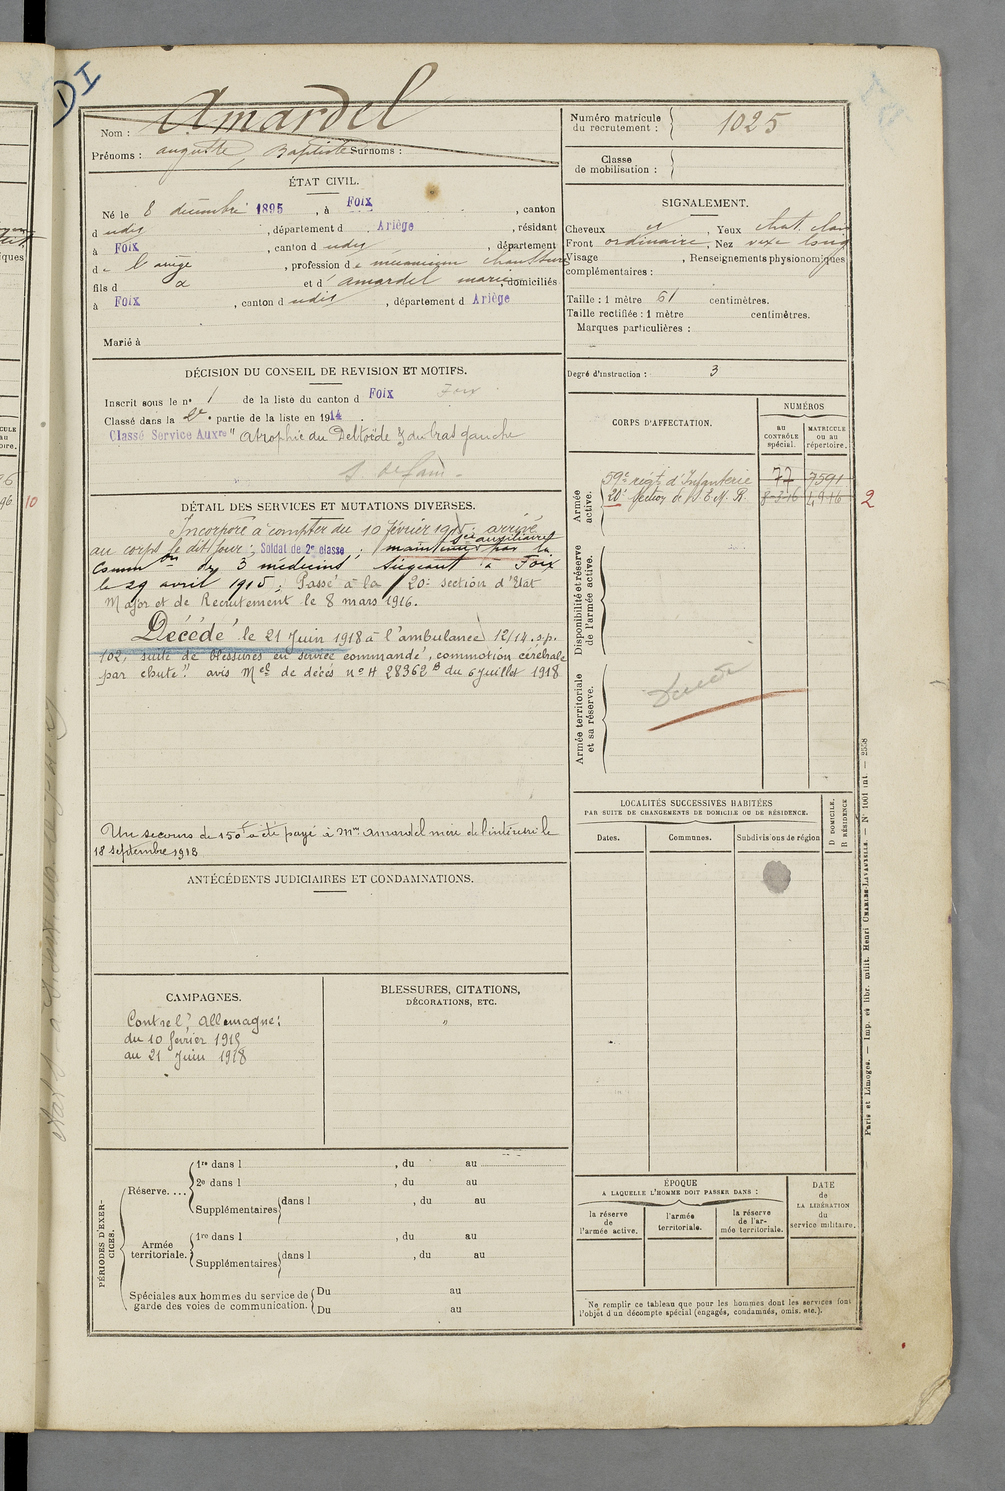 DI
Nom : Amardel
Prénoms : auguste, Baptiste Surnoms :
Numéro matricule du recrutement : 1025
Classe de mobilisation :
ÉTAT CIVIL.
Né le 8 décembre 1895, à Foix, canton
d udit, département d Ariège, résidant
à Foix, canton d udit, département
de l'ariège, profession de mécanicien chauffeur
fils d et d' amardel marie, domiciliés
à Foix, canton d udit, département d Ariège
Marié à
SIGNALEMENT.
Cheveux Yeux chat. clair
Front ordinaire, Nez vexe long
Visage , Renseignements physionomiques
complémentaires :
Taille : 1 mètre 61 centimètres.
Taille rectifiée : 1 mètre centimètres.
Marques particulières :
Degré d'instruction : 3
DÉCISION DU CONSEIL DE REVISION ET MOTIFS.
Inscrit sous le n° 1 de la liste du canton d Foix
Classé dans la 2e partie de la liste en 1914
Classé Service Auxre " atrophie du Deltoïde & du bras gauche
DÉTAIL DES SERVICES ET MUTATIONS DIVERSES.
Incorporé à compter du 10 février 1915, arrivé
au corps le dit jour; Soldat de 2e classe; maintenu sce auxiliaire par la
Common des 3 médecins siégeant à Foix
le 29 avril 1915; Passé à la 20e section d'Etat
Major et de Recrutement le 8 mars 1916.
Décédé le 21 Juin 1918 à l'ambulance 12/14. s.p.
102, suite de blessures en service commandé, commotion cérébrale
par chute". avis Mel de décès n° H 28362 B du 6 Juillet 1918
Un secours de 150f a été payé à Mme Amardel mère de l'intéressé le
18 septembre 1918
CORPS D'AFFECTATION.
NUMÉROS
AU CONTRÔLE spécial.
MATRICULE OU AU répertoire.
Armée active.
59e régt d'Infanterie 77 7591
20e section de D.E.M.R. 8-3-16 4916 2
Disponibilité et réserve de l'armée active.
Armée territoriale et sa réserve.
Décédé
LOCALITÉS SUCCESSIVES HABITÉES
PAR SUITE DE CHANGEMENTS DE DOMICILE OU DE RÉSIDENCE.
Dates.
Communes.
Subdivisions de région
D DOMICILE.
R RÉSIDENCE
ANTÉCÉDENTS JUDICIAIRES ET CONDAMNATIONS.
CAMPAGNES.
Contre l'Allemagne:
du 10 février 1915
au 21 Juin 1918
BLESSURES, CITATIONS,
DÉCORATIONS, ETC.
"
PÉRIODES D'EXERCICES.
Réserve....
1re dans l , du au
2e dans l , du au
Supplémentaires dans l , du au
Armée territoriale.
1re dans l , du au
Supplémentaires dans l , du au
Spéciales aux hommes du service de
garde des voies de communication.
Du au
Du au
ÉPOQUE
A LAQUELLE L'HOMME DOIT PASSER DANS :
la réserve de l'armée active.
l'armée territoriale.
la réserve de l'armée territoriale.
DATE
de
LA LIBÉRATION
du
service militaire.
Ne remplir ce tableau que pour les hommes dont les services font
l'objet d'un décompte spécial (engagés, condamnés, omis, etc.).
Paris et Limoges. — Imp. et libr. milit. Henri CHARLES-LAVAUZELLE. — N° 1001 int — 2558
10